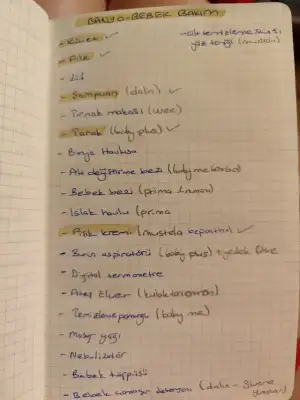 BANYO-BEBEK BAKIM
- Küvet ✓
- File ✓
- Lif
- Şampuan (dalin) ✓
- Tırnak makası (wee)
- Tarak (baby plus) ✓
- Banyo Havlusu
- Alt değiştirme bezi (baby me
- Bebek bezi (prima
- Islak havlu (prima
- Pişik kremi (mustela bepanthol) ✓
- Burun aspiratörü (baby plus) + yedek
- Dijital termometre
- Ateş ölçer (kulaktan
- Temizleme pamuğu (baby me)
- Masaj yağı
- Nebulizatör
- Bebek törpüsü
- Bebek çamaşır deterjanı (dalin -
- Cilt temizleme suyu
yüz (mustela)